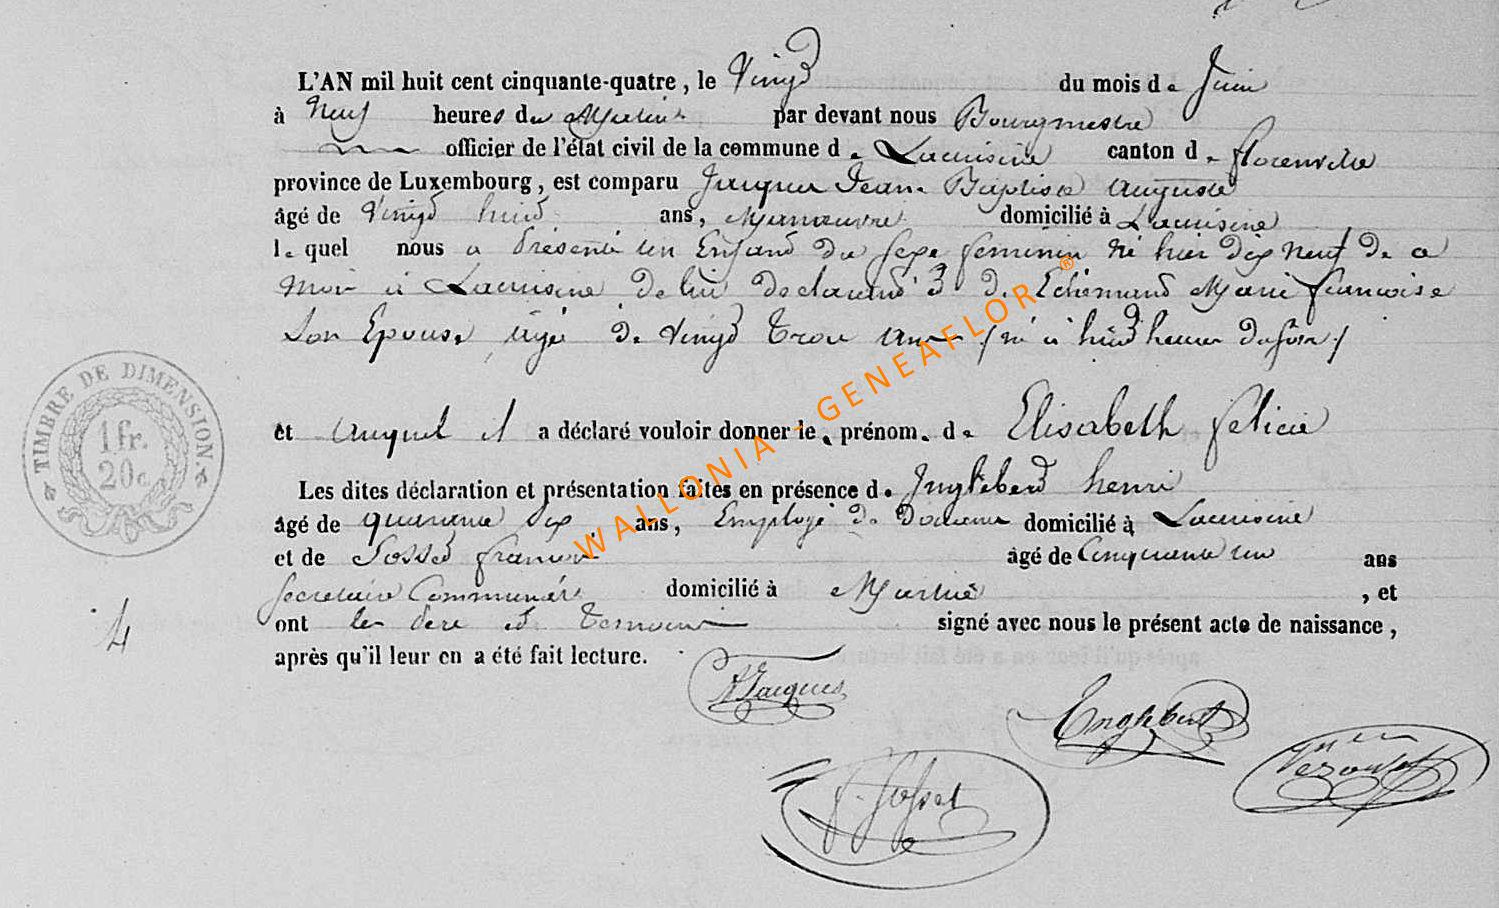 L'AN mil huit cent cinquante-quatre, le Vingt du mois de Juin
à Neuf heures du Matin par devant nous Bourgmestre
officier de l'état civil de la commune de Lacuisine canton de florenville
province de Luxembourg, est comparu Jacques Jean Baptiste Auguste
âgé de Vingt huit ans, Manœuvre domicilié à Lacuisine
lequel nous a Présenté un Enfant du sexe feminin né hier dix Neuf de ce
Mois à Lacuisine de lui declarant & de Marie françoise
Son Epouse, agée de Vingt trois ans (né à huit heures du soir)
et auquel il a déclaré vouloir donner les prénoms de Elisabeth felicie
Les dites déclaration et présentation faites en présence de Inglebert henri
âgé de quarante six ans, Employé de Douane domicilié à Lacuisine
et de Josset françois âgé de Cinquante un ans
Secretaire Communal domicilié à Martué, et
ont les Pere et Temoins signé avec nous le présent acte de naissance,
après qu'il leur en a été fait lecture.
Jacques
Englebert
TIMBRE DE DIMENSION
1 fr.
20c
4
WALLONIA - GENEAFLOR ®